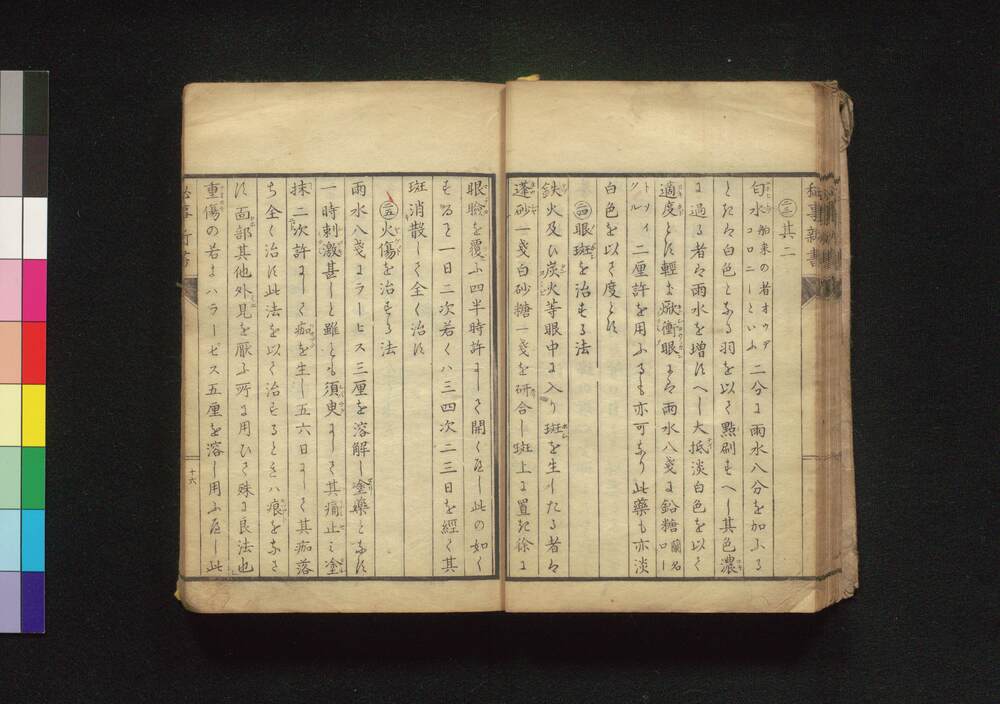 ㊂其二
匂水舶来の者オウデコロニーといふ二分に雨水八分を加ふる
ときは白色となる羽を以て點刷すへし其色濃
に過る者は雨水を増すへし大抵淡白色を以て
適度とす輕き焮衝眼には雨水八戔に鉛糖蘭名ロー
トソイクル二厘許を用ふるも亦可なり此藥も亦淡
白色を以て度とす
㊁㊃眼斑を治する法
鉄火及ひ炭火等眼中に入り斑を生したる者は
蓬砂一戔白砂糖一戔を研合し斑上に置き徐に
眼瞼を覆ふ四半時許にして開くべし此の如く
する𪜈一日二次若くハ三四次二三日を經て其
斑消散して全く治す
㊁㊄火傷を治する法
雨水八戔にラーヒス三厘を溶解し塗藥となす
一時刺激甚しと雖とも須臾にして其痛止ミ塗
抹二次許にして痂を生し五六日にして其痂落
ち全く治す此法を以て治するときハ痕をなさ
す面部其他外見を厭ふ所に用ひて殊に良法也
重傷の若きハラーピス五厘を溶し用ふべし此
十六